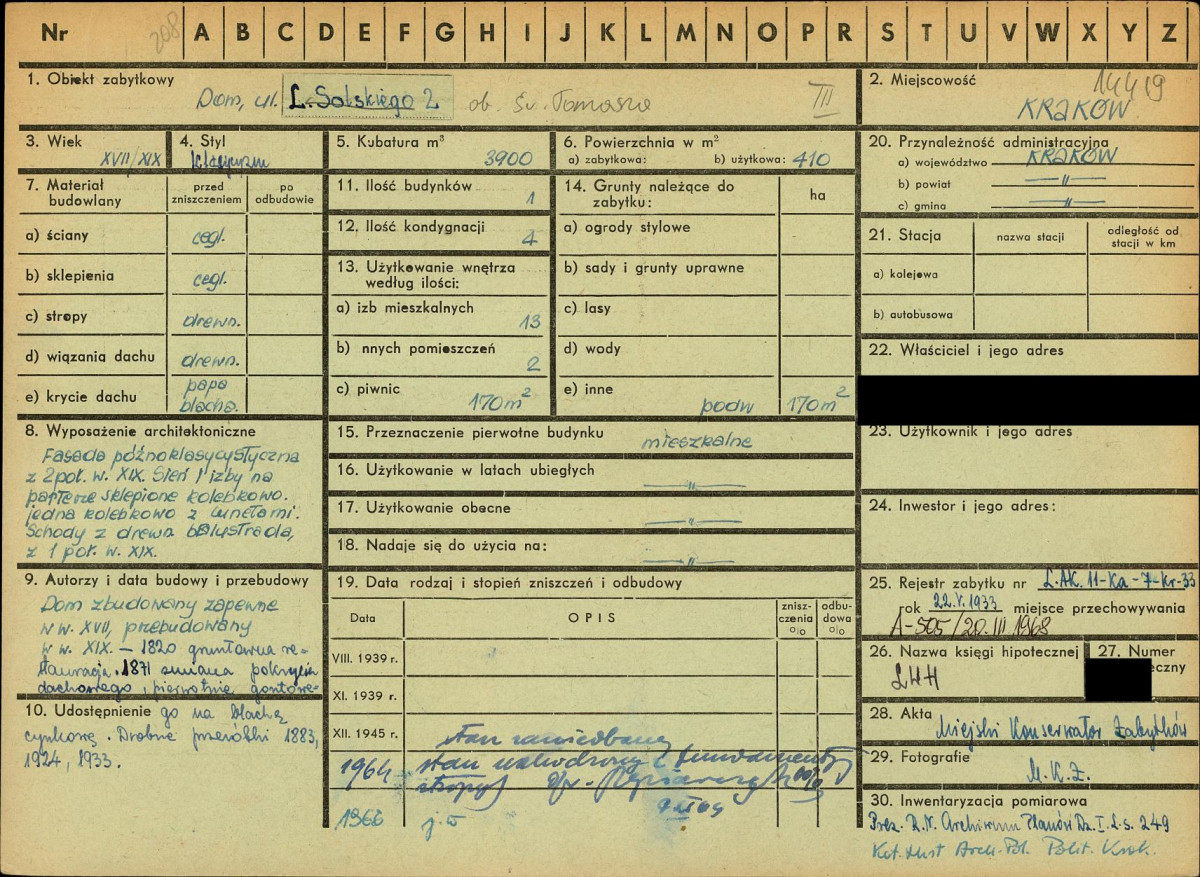 Nr 208 A B C D E F G H I J K L M N O P R S T U V W X Y Z
1. Obiekt zabytkowy
Dom, ul. L. Solskiego 2 ob. Św. Tomasza III
2. Miejscowość
14419
KRAKÓW
3. Wiek
XVII/XIX
4. Styl
klasycyzm
5. Kubatura m³
3900
6. Powierzchnia w m²
a) zabytkowa: b) użytkowa: 410
20. Przynależność administracyjna
a) województwo KRAKÓW
b) powiat —"—
c) gmina —"—
7. Materiał budowlany
przed zniszczeniem
po odbudowie
a) ściany cegl.
b) sklepienia cegl.
c) stropy drewn.
d) wiązania dachu drewn.
e) krycie dachu papa blacha.
11. Ilość budynków 1
12. Ilość kondygnacji 4
13. Użytkowanie wnętrza
według ilości:
a) izb mieszkalnych 13
b) nnych pomieszczeń 2
c) piwnic 170 m²
14. Grunty należące do
zabytku:
ha
a) ogrody stylowe
b) sady i grunty uprawne
c) lasy
d) wody
e) inne podw 170 m²
21. Stacja
nazwa stacji
odległość od
stacji w km
a) kolejowa
b) autobusowa
22. Właściciel i jego adres
8. Wyposażenie architektoniczne
Fasada późnoklasycystyczna
z 2 poł. w. XIX. Sień i izby na
parterze sklepione kolebkowo.
jedna kolebkowo z lunetami.
Schody z drewn balustradą,
z 1 poł. w. XIX.
15. Przeznaczenie pierwotne budynku mieszkalne
16. Użytkowanie w latach ubiegłych —"—
17. Użytkowanie obecne —"—
18. Nadaje się do użycia na: —"—
23. Użytkownik i jego adres
24. Inwestor i jego adres:
9. Autorzy i data budowy i przebudowy
Dom zbudowany zapewne
w w. XVII, przebudowany
w w. XIX. – 1820 gruntowna re-
stauracja. 1871 zmiana pokrycia
dachowego, pierwotnie gontowe-
10. Udostępnienie
go na blachę
cynkową. Drobne przeróbki 1883,
1924, 1933.
19. Data rodzaj i stopień zniszczeń i odbudowy
Data
OPIS
znisz-
czenia
%
odbu-
dowa
%
VIII. 1939 r.
XI. 1939 r.
XII. 1945 r. stan zaniedbany
1964 stan uszkodzony (fundamenty
stropy) 60%
1966 j.w
25. Rejestr zabytku nr L.AK. 11-Ka-7-Kr-33
rok 22.V.1933 miejsce przechowywania
A-505/20.III 1968
26. Nazwa księgi hipotecznej
L44
27. Numer
eczny
28. Akta
Miejski Konserwator Zabytków
29. Fotografie
M.K.Z.
30. Inwentaryzacja pomiarowa
Prez. R.N. Archiwum Planów Dz. I. L.s. 249
Kat. Hist Arch. Pol. Polit. Krak.